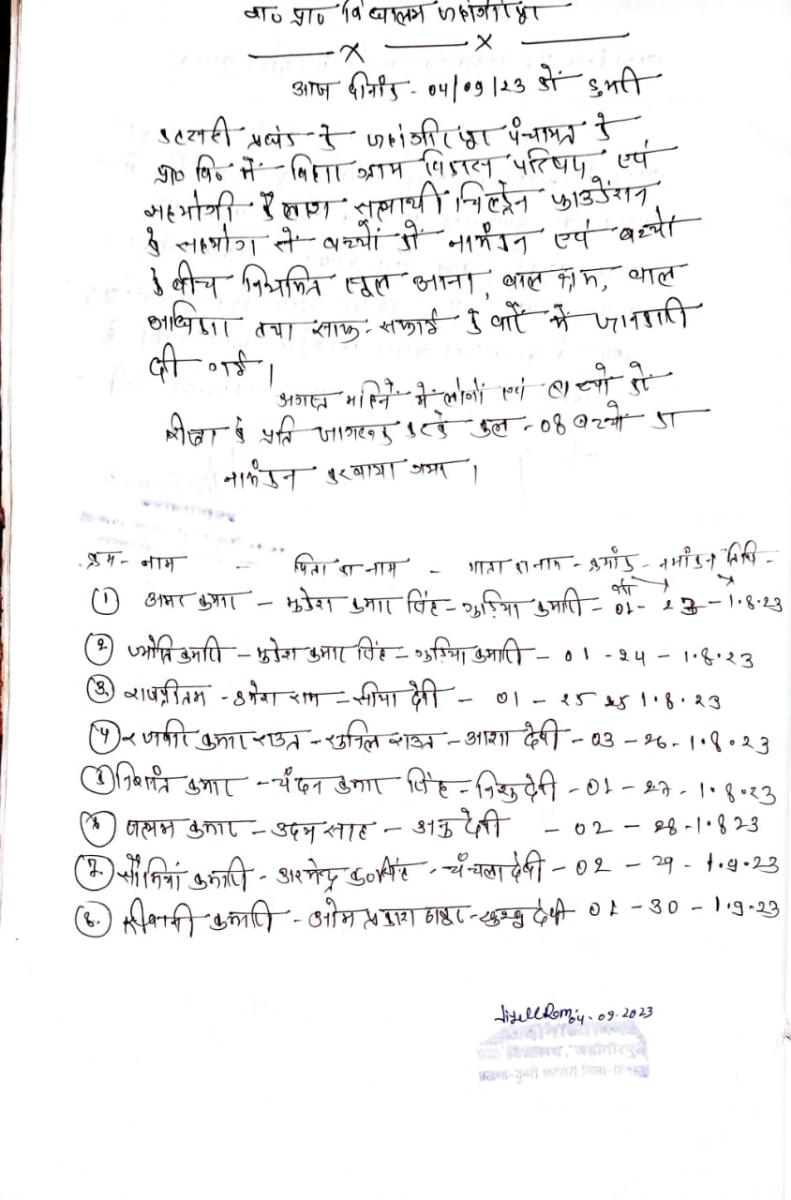 रा० प्रा० विद्यालय जहांगीरपुर
आज दिनांक - 04/09/23 को डुमरी
कटसरी प्रखंड के जहांगीरपुर पंचायत के
प्रा० वि० में बिहार ग्राम विकास परिषद् एवं
सहयोगी कैलाश सत्यार्थी चिल्ड्रेन फाउंडेशन
के सहयोग से बच्चों को नामांकन एवं बच्चों
के बीच नियमित स्कूल आना, बाल श्रम, बाल
अधिकार तथा साफ-सफाई के बारे में जानकारी
दी गई।
अगस्त महिने में लोगों एवं बच्चो को
शिक्षा के प्रति जागरूक करके कुल - 08 बच्चो का
नामांकन करवाया गया।
क्रम - नाम - पिता का नाम - माता का नाम - क्रमांक - नमांकन तिथि -
वर्ग
(1) अमर कुमार - मुकेश कुमार सिंह - गुड़िया कुमारी - 01 - 23 - 1.8.23
(2) ज्योति कुमारी - मुकेश कुमार सिंह - गुड़िया कुमारी - 01 - 24 - 1.8.23
(3) राजप्रीतम - उमेश राम - सीया देवी - 01 - 25 1.8.23
(4) रजनी कुमार राउत - सुनिल राउत - आशा देवी - 03 - 26 - 1.8.23
निशांत कुमार - चंदन कुमार सिंह - निशु देवी - 01 - 27 - 1.8.23
कुमार - उदय साह - अनु देवी - 02 - 28 - 1.8 23
(7) सौमियां कुमारी - कु० सिंह - चंचला देवी - 02 - 29 - 1.9.23
(8.) शिवानी कुमारी - ओम प्रकाश ठाकुर - खुश्बु देवी 01 - 30 - 1.9.23
04.09.2023
प्रा० विद्यालय, जहाँगीरपुर
प्रखण्ड-डुमरी कटसरी जिला-शिवहर